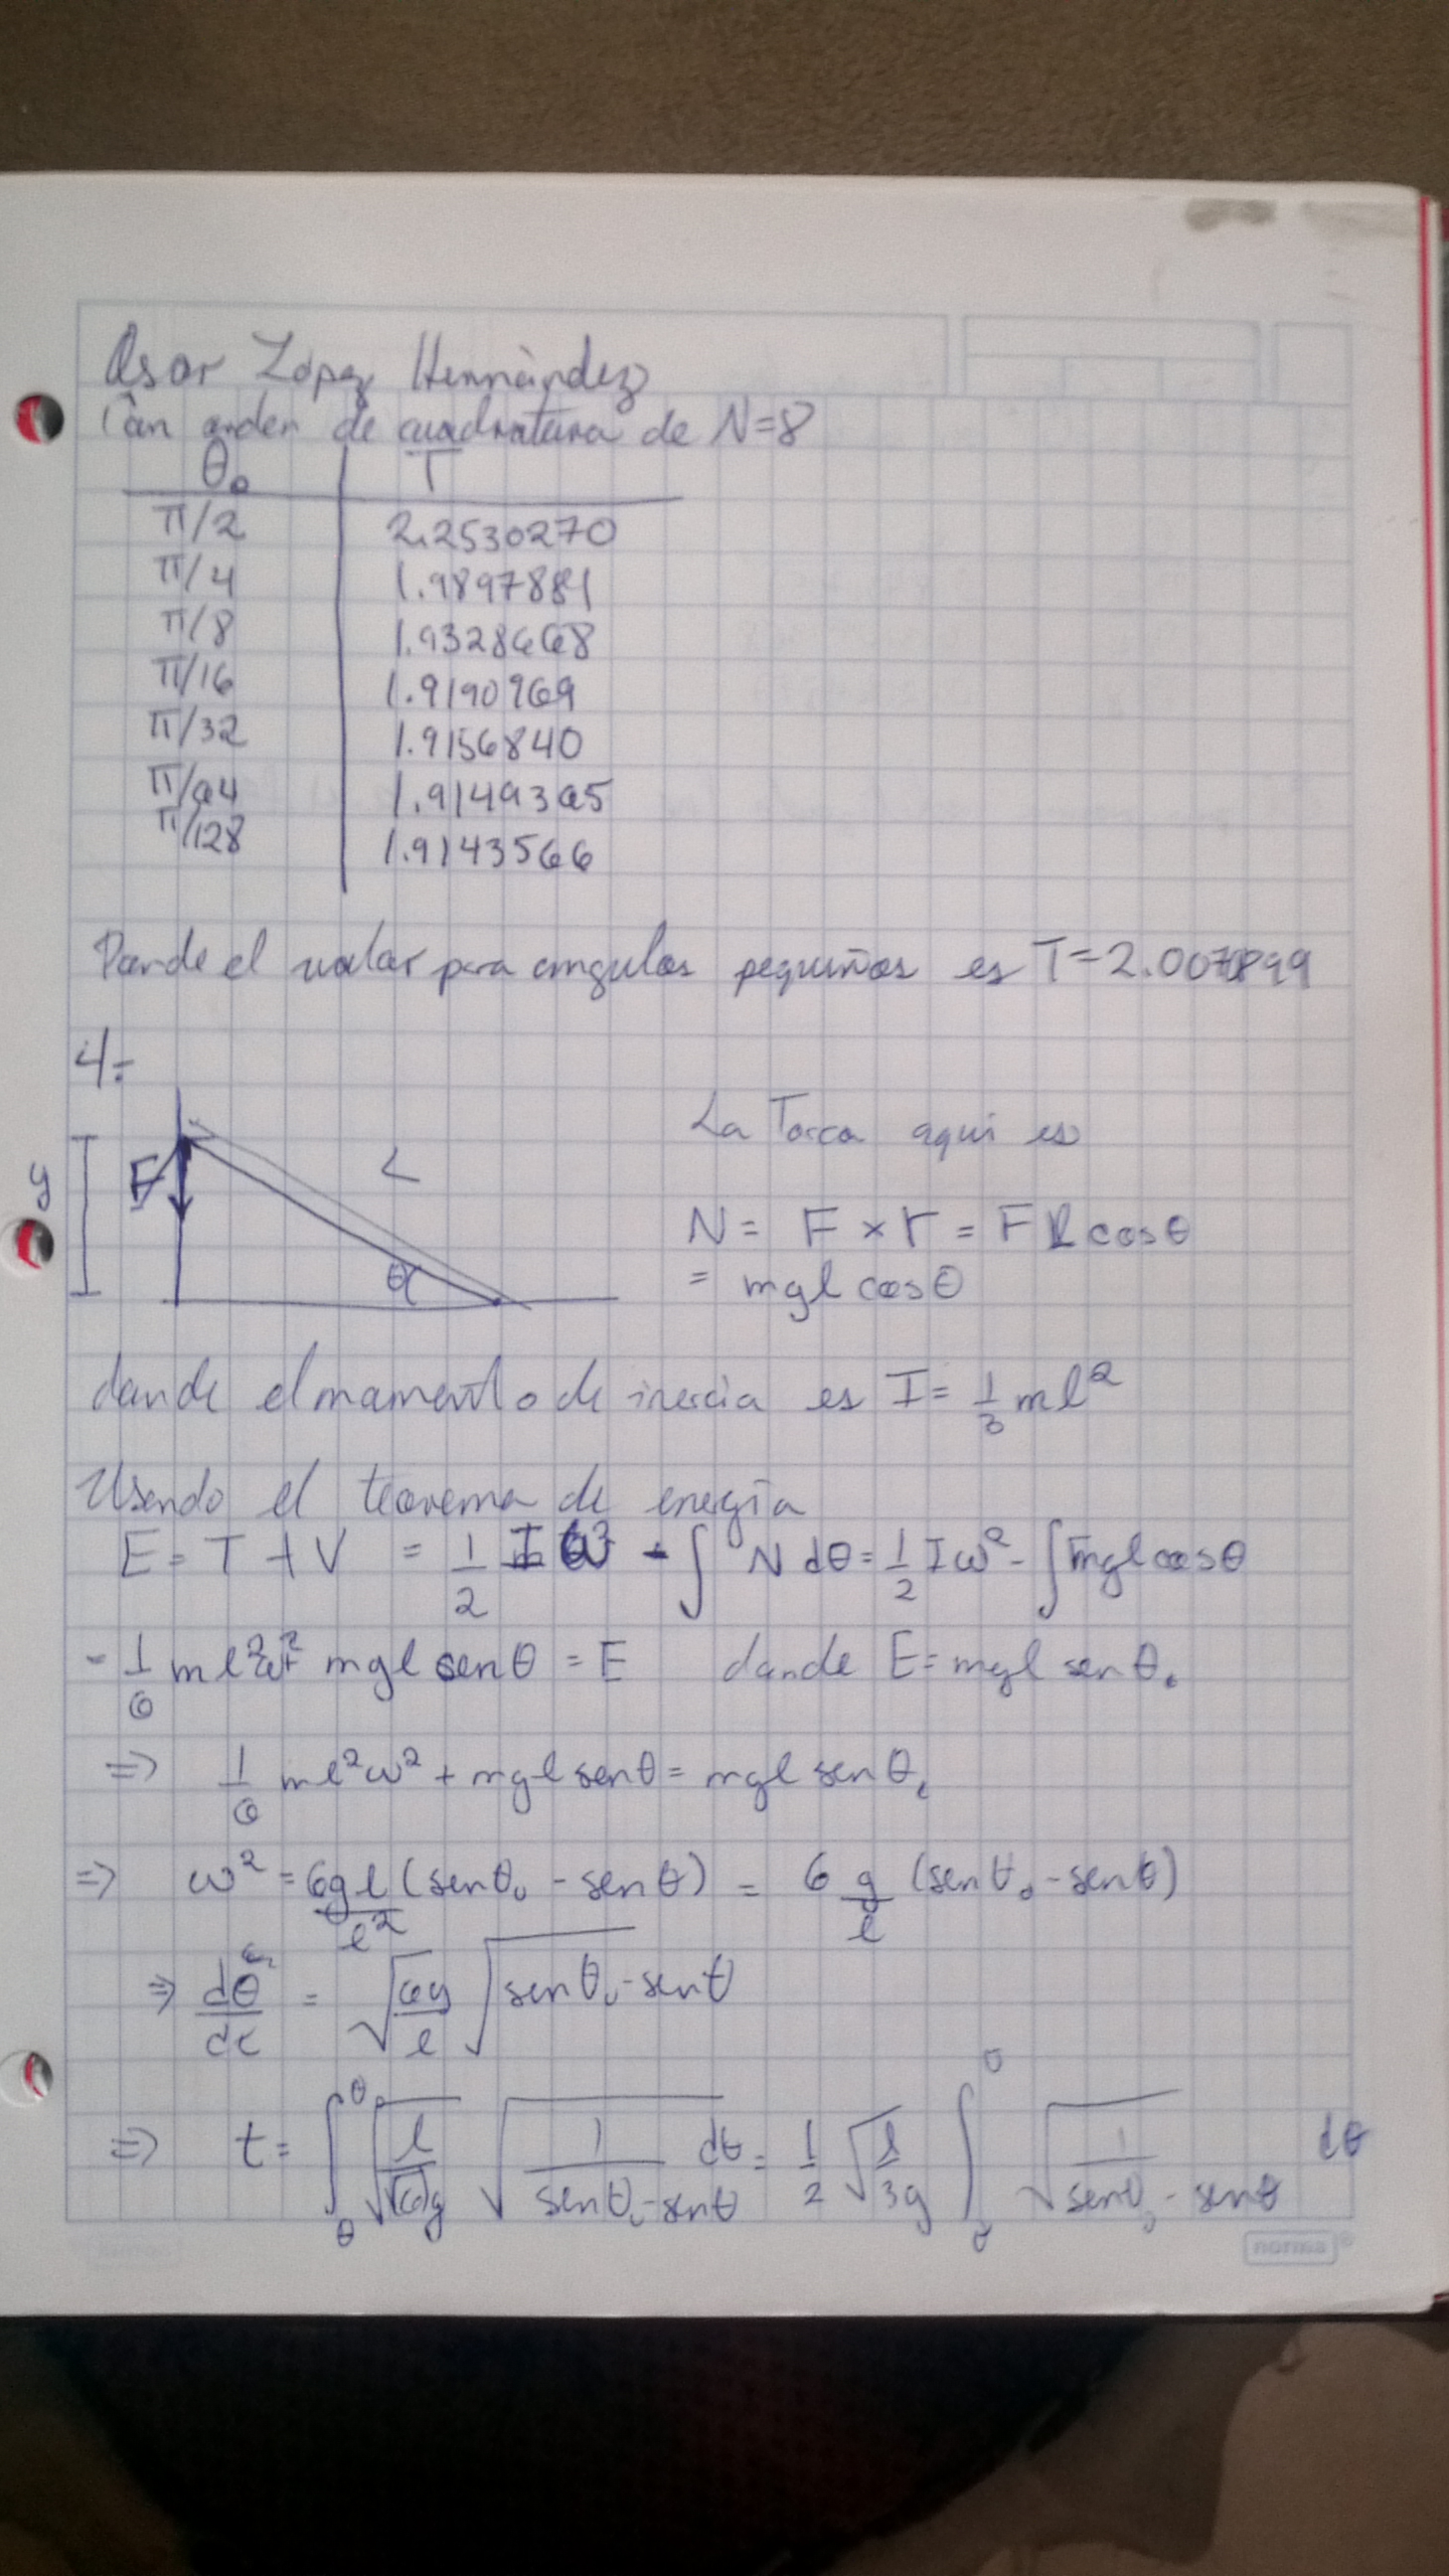 Osar López Hernández
Con orden de cuadratura de N=8
θ₀ T
π/2 2.2530270
π/4 1.9897881
π/8 1.9328668
π/16 1.9190969
π/32 1.9156840
π/64 1.9149365
π/128 1.9143566
Donde el valor para angulos pequeños es T=2.0070899
4.-
La Torca aqui es
y F L θ
N = F × r = F l cosθ
= mgl cosθ
donde el momento de inercia es I = 1/3 ml²
Usando el teorema de energía
E = T + V = 1/2 I ω² - ∫ N dθ = 1/2 I ω² - ∫ mgl cosθ
- 1/6 ml²ω² + mgl senθ = E donde E = mgl senθ₀
⇒ 1/6 ml²ω² + mgl senθ = mgl senθ₀
⇒ ω² = 6gl/l² (senθ₀ - senθ) = 6 g/l (senθ₀ - senθ)
⇒ dθ/dt = √(6g/l) √(senθ₀ - senθ)
⇒ t = ∫ √(l/6g) √(1/(senθ₀ - senθ)) dθ = 1/2 √(l/3g) ∫ √(1/(senθ₀ - senθ)) dθ
norma